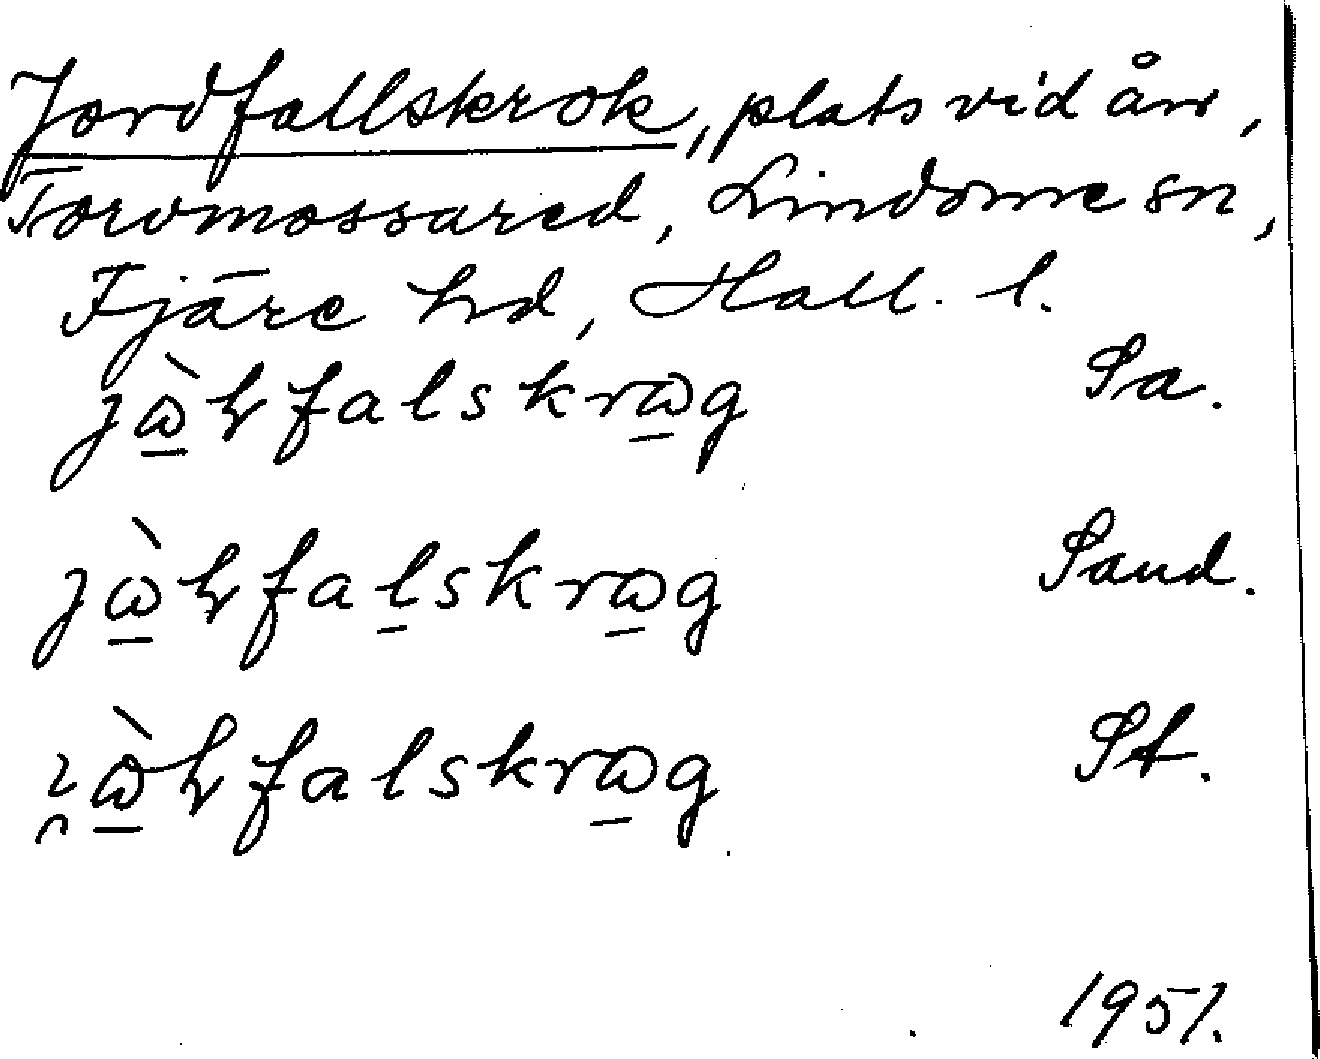 Jordfallskrok, plats vid ån,
Torvmossared, Lindome sn,
Fjäre hd, Hall. l.
jὼ̲ɦfalskrω̲g Sa.
jὼ̲ɦfal̲skrω̲g Sand.
ı̯ὼ̲ɦfalskrω̲g St.
1957.